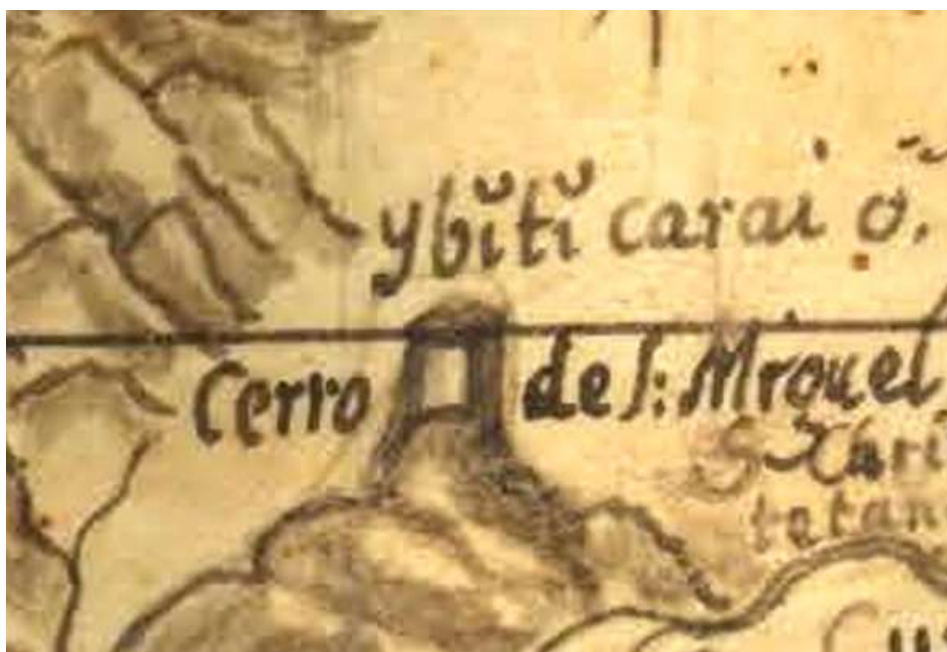 ybĭtĭ carai ŏ.
Cerro de S: Mrouel
S Xari
tetan
Cu